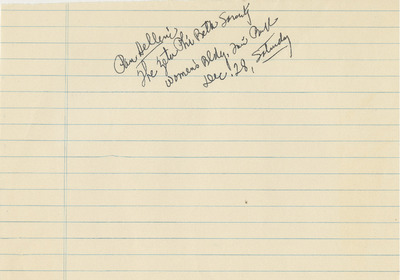 Pan Hellenic
The Zeta Phi Beta Sorority
Women's Bldg. Fair Park
Dec. 28, Saturday